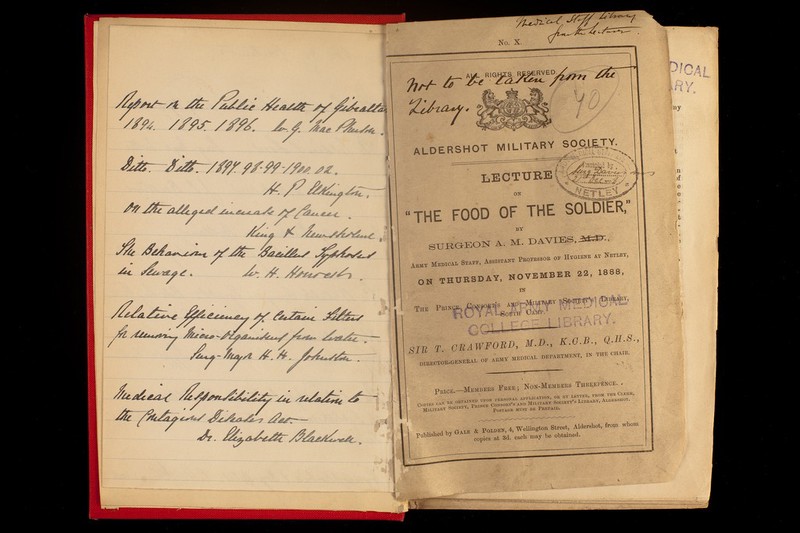 Report on the Public Health of Gibraltar
1894. 1895. 1896. by J. Mac Pherson.
Ditto. Ditto. 1897. 98-99-1900. 02.
H. P. Elkington.
On the alleged increase of Cancer.
King & Newsholme.
The Behaviour of the Bacillus Typhosus
in Sewage. W. H. Horrocks.
Relative Efficiency of Certain Filters
for removing Micro-Organisms from Water.
Surg-Major H. H. Johnston.
Medical Responsibility in relation to
the Contagious Diseases Act.
Dr. Elizabeth Blackwell.
Medical Staff Library
from the Lecturer
No. X.
ALL RIGHTS RESERVED
Not to be taken from the
Library.
40
ALDERSHOT MILITARY SOCIETY.
LECTURE
NETLEY
ON
"THE FOOD OF THE SOLDIER,"
BY
SURGEON A. M. DAVIES, M.D.,
ARMY MEDICAL STAFF, ASSISTANT PROFESSOR OF HYGIENE AT NETLEY,
ON THURSDAY, NOVEMBER 22, 1888,
IN
THE PRINCE CONSORT'S AND MILITARY SOCIETY'S LIBRARY,
SOUTH CAMP.
ROYAL ARMY MEDICAL
COLLEGE LIBRARY.
SIR T. CRAWFORD, M.D., K.C.B., Q.H.S.,
DIRECTOR-GENERAL OF ARMY MEDICAL DEPARTMENT, IN THE CHAIR.
PRICE.—MEMBERS FREE; NON-MEMBERS THREEPENCE.
COPIES CAN BE OBTAINED UPON PERSONAL APPLICATION, OR BY LETTER, FROM THE CLERK,
MILITARY SOCIETY, PRINCE CONSORT'S AND MILITARY SOCIETY'S LIBRARY, ALDERSHOT.
POSTAGE MUST BE PREPAID.
Published by GALE & POLDEN, 4, Wellington Street, Aldershot, from whom
copies at 3d. each may be obtained.
DICAL
RY.